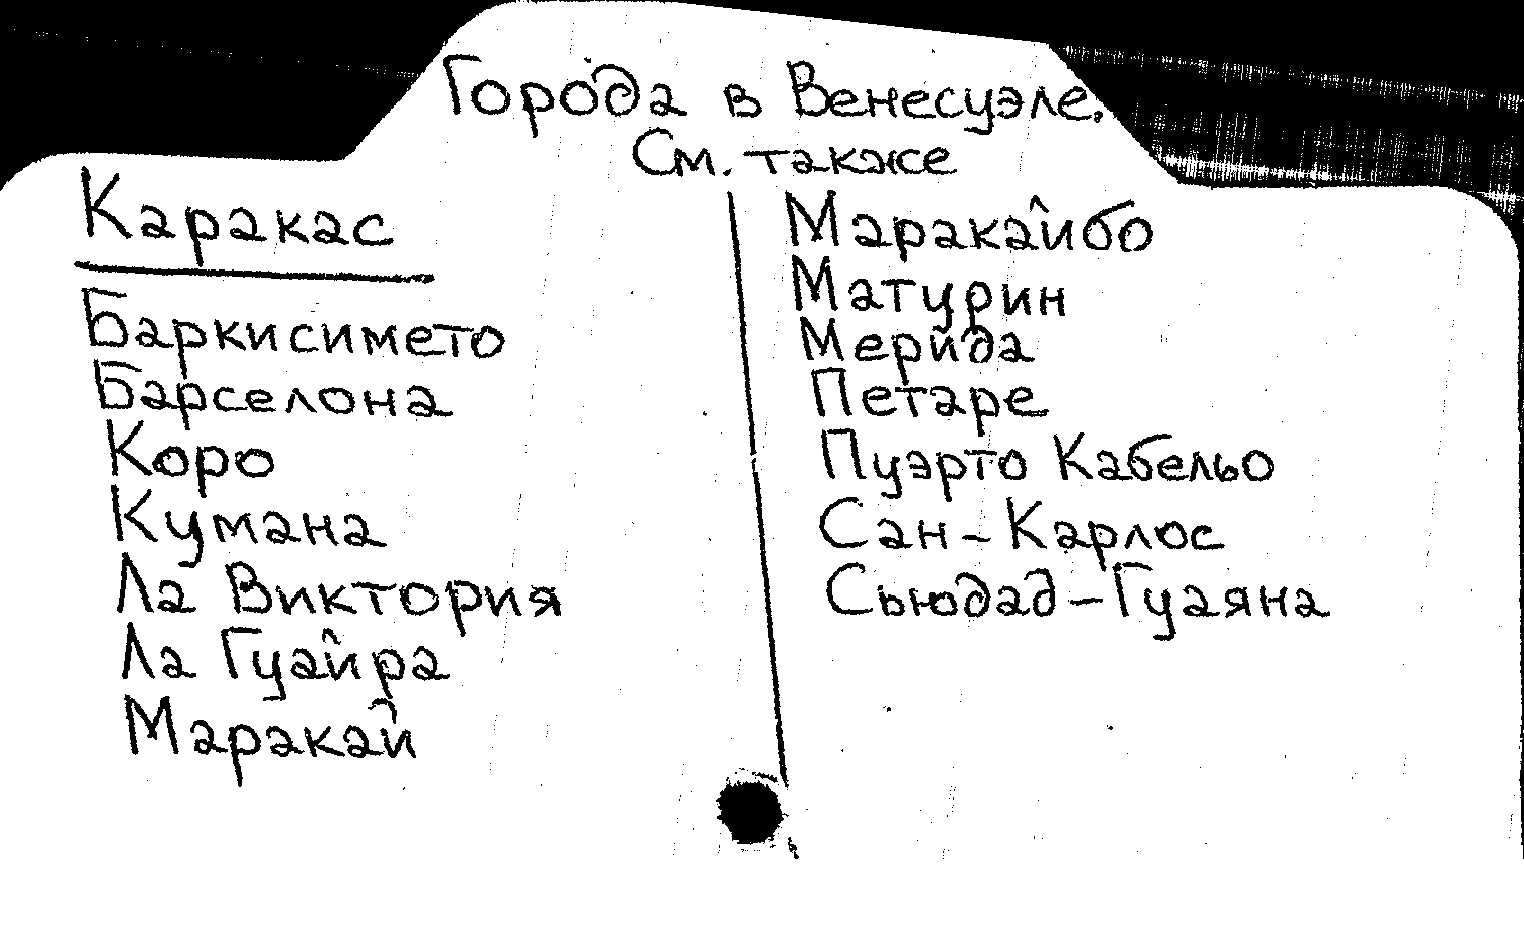 Города в Венесуэле.
См. также
Каракас
Баркисимето
Барселона
Коро
Кумана
Ла Виктория
Ла Гуайра
Маракай
Маракайбо
Матурин
Мерида
Петаре
Пуэрто Кабельо
Сан-Карлос
Сьюдад-Гуаяна